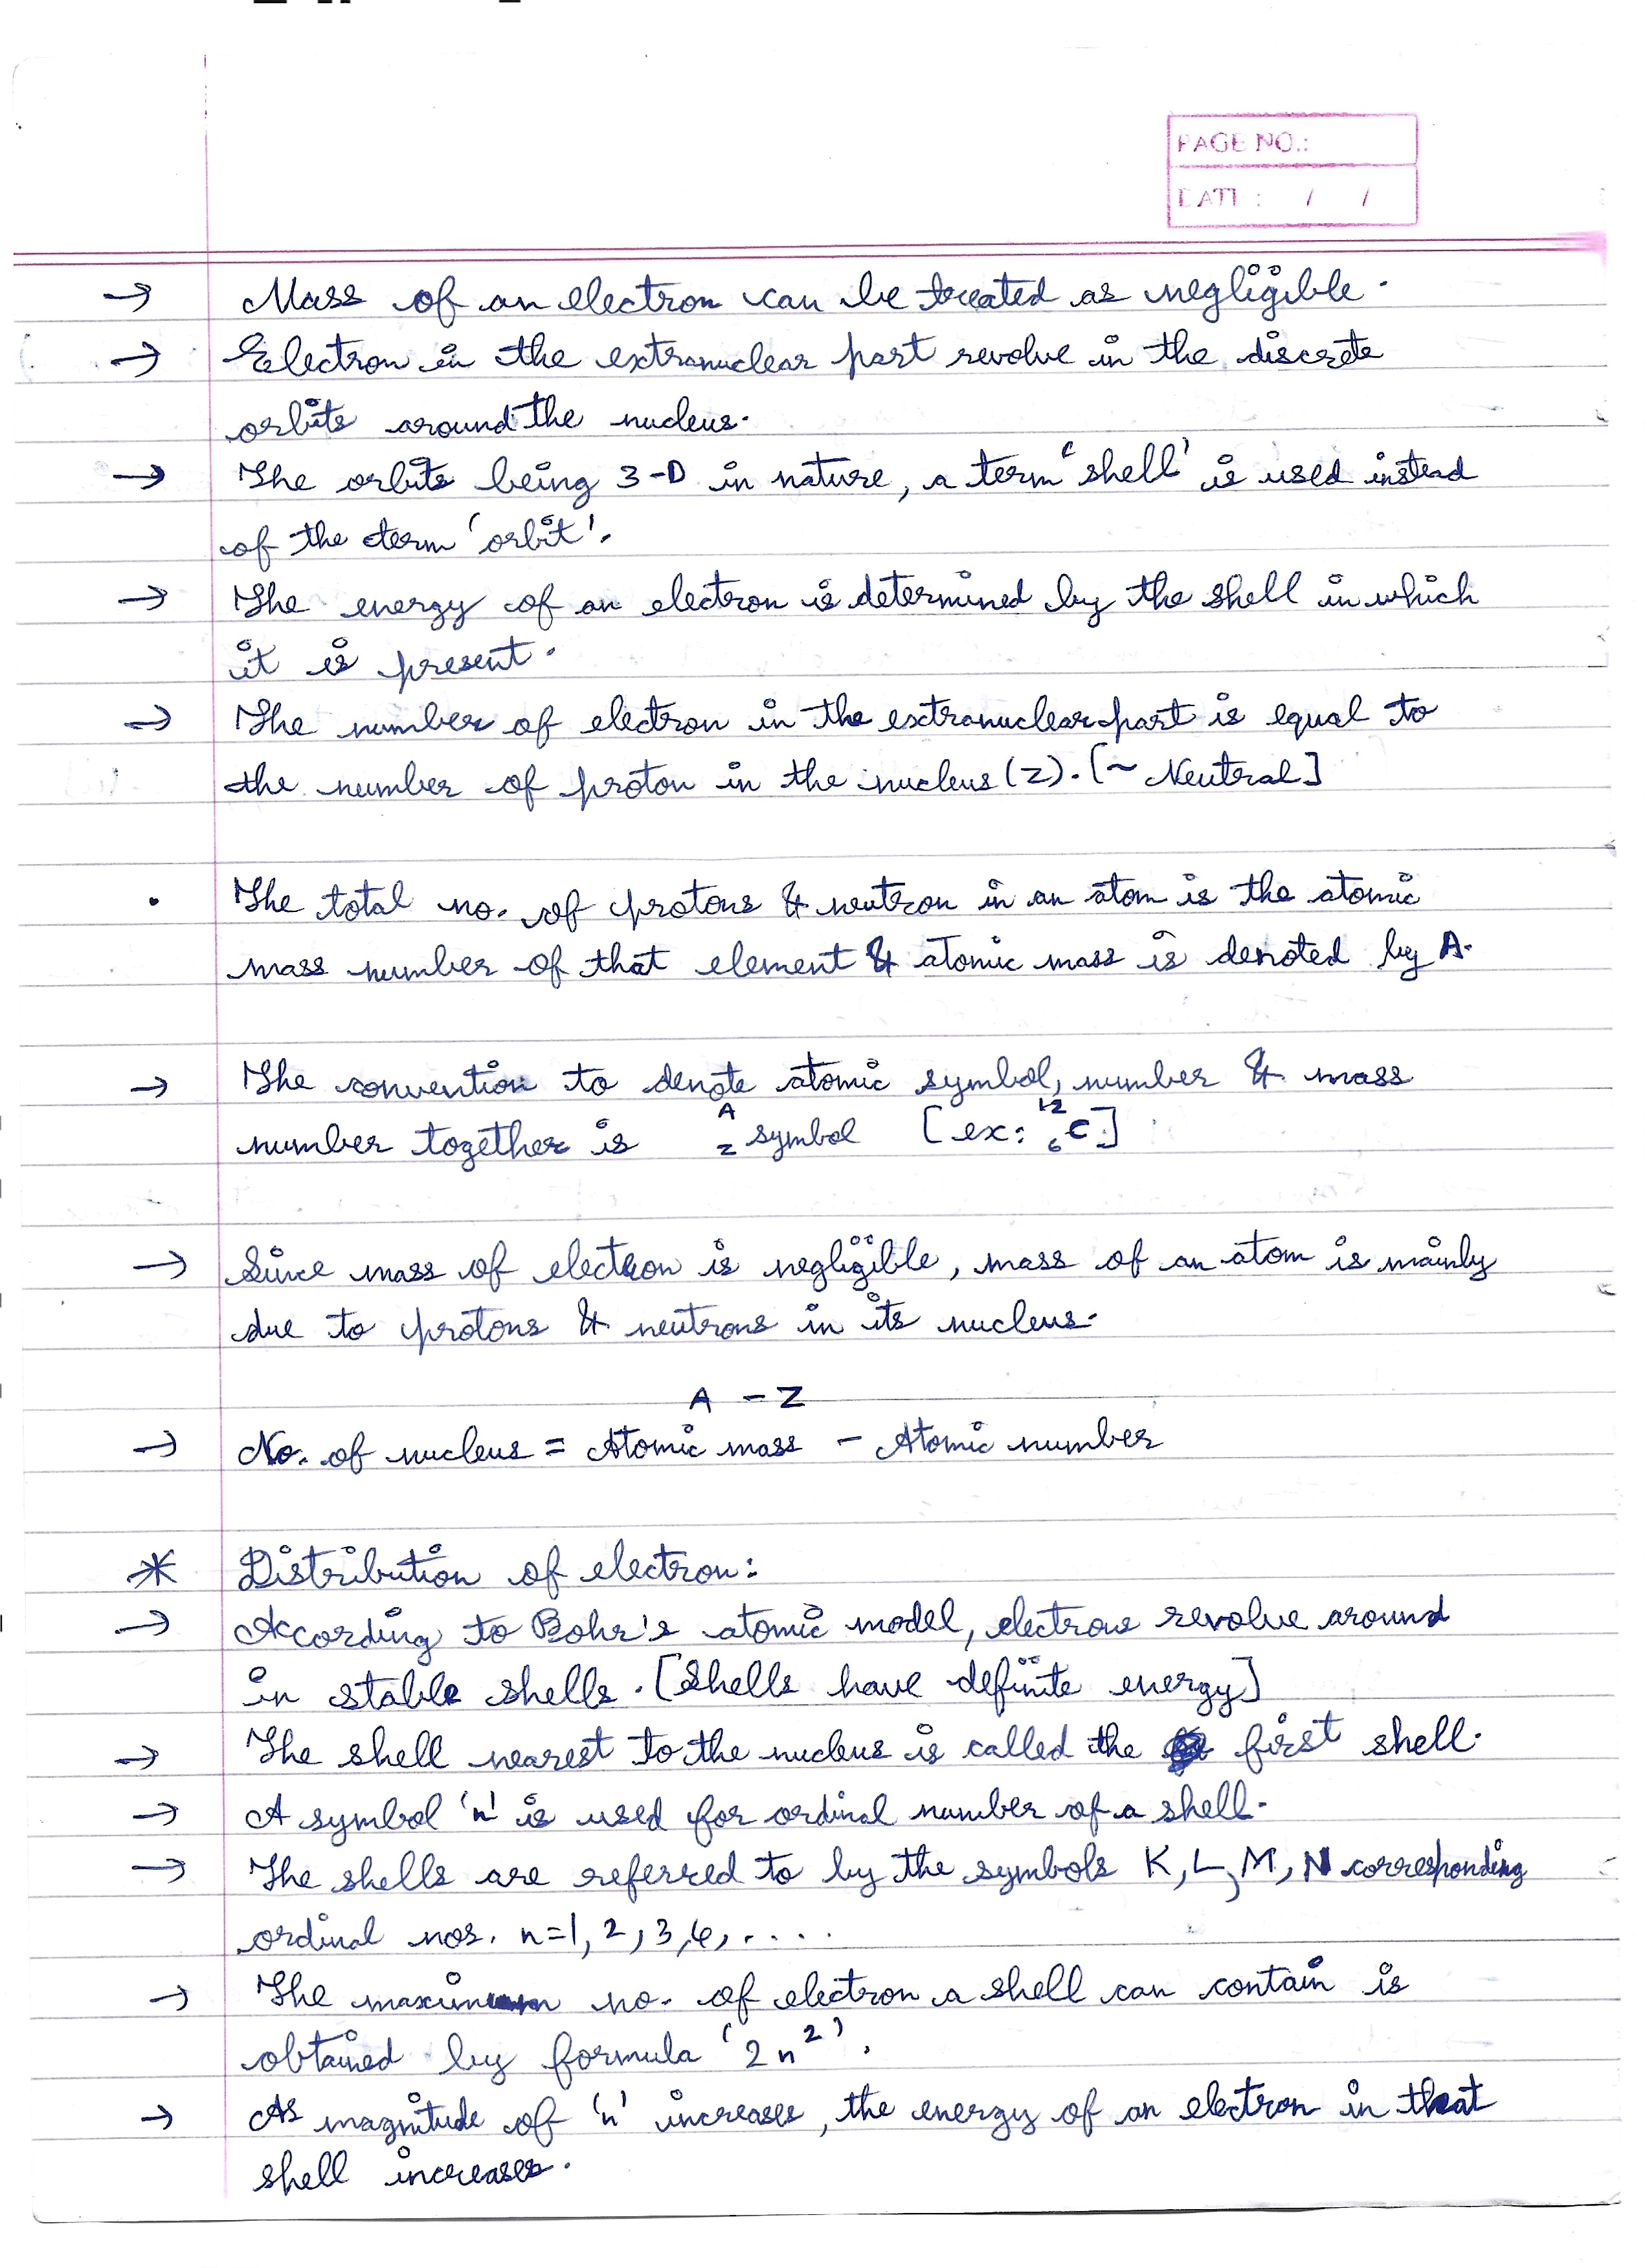 PAGE NO.:
DATE : / /
→ Mass of an electron can be treated as negligible.
→ Electron in the extranuclear part revolve in the discrete
orbits around the nucleus.
→ The orbits being 3-D in nature, a term 'shell' is used instead
of the term 'orbit'.
→ The energy of an electron is determined by the shell in which
it is present.
→ The number of electron in the extranuclear part is equal to
the number of proton in the nucleus (z). [~ Neutral]
• The total no. of protons & neutron in an atom is the atomic
mass number of that element & atomic mass is denoted by A.
→ The convention to denote atomic symbol, number & mass
number together is ᴬ_z symbol [ex: ¹²₆C]
→ Since mass of electron is negligible, mass of an atom is mainly
due to protons & neutrons in its nucleus.
A - Z
→ No. of nucleus = Atomic mass - Atomic number
* Distribution of electron:
→ According to Bohr's atomic model, electrons revolve around
in stable shells. [Shells have definite energy]
→ The shell nearest to the nucleus is called the first shell.
→ A symbol 'n' is used for ordinal number of a shell.
→ The shells are referred to by the symbols K, L, M, N corresponding
ordinal nos. n=1, 2, 3, 4, ....
→ The maximum no. of electron a shell can contain is
obtained by formula '2n²'.
→ As magnitude of 'n' increases, the energy of an electron in that
shell increases.